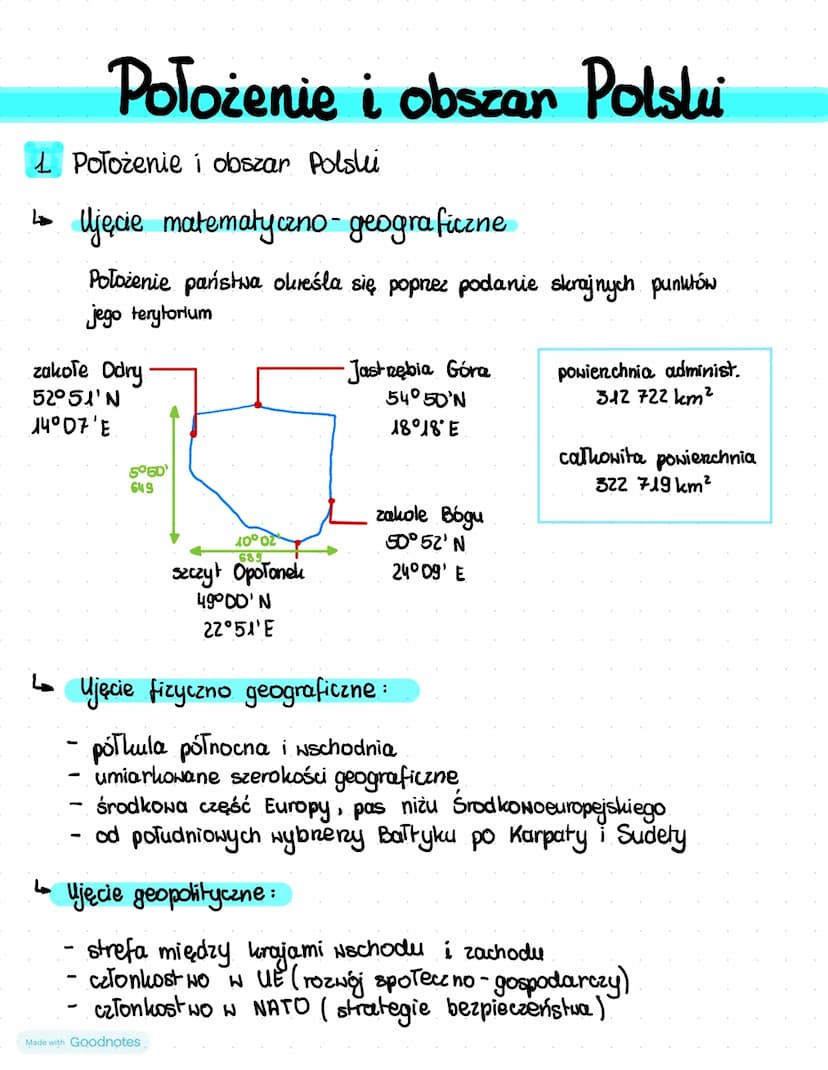 Położenie i obszar Polski
1 Położenie i obszar Polski
↳ Ujęcie matematyczno-geograficzne
Położenie państwa określa się poprzez podanie skrajnych punktów
jego terytorium
zakole Odry
52°51'N
14°07'E
Jastrzębia Góra
54°50'N
18°18'E
powierzchnia administ.
312 722 km²
całkowita powierzchnia
322 719 km²
5°50'
649
zakole Bógu
50°52'N
24°09' E
10°02'
689
szczyt Opołonek
49°00'N
22°51'E
↳ Ujęcie fizyczno geograficzne:
- półkula północna i wschodnia
- umiarkowane szerokości geograficzne
- środkowa część Europy, pas niżu Środkowoeuropejskiego
- od południowych wybrzeży Bałtyku po Karpaty i Sudety
↳ Ujęcie geopolityczne:
- strefa między krajami wschodu i zachodu
- członkostwo w UE (rozwój społeczno-gospodarczy)
- członkostwo w NATO (strategie bezpieczeństwa)
Made with Goodnotes